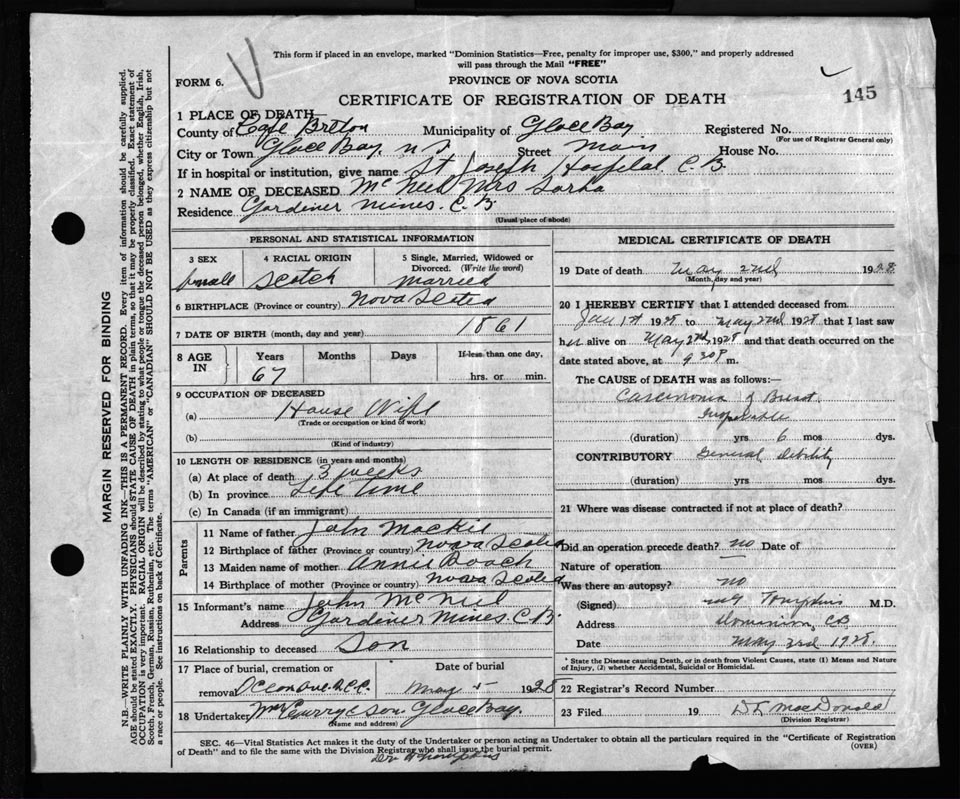 This form if placed in an envelope, marked "Dominion Statistics—Free, penalty for improper use, $300," and properly addressed
will pass through the Mail "FREE"
FORM 6.
PROVINCE OF NOVA SCOTIA
CERTIFICATE OF REGISTRATION OF DEATH
145
1 PLACE OF DEATH—
County of Cape Breton Municipality of Glace Bay Registered No.
(For use of Registrar General only)
City or Town Glace Bay, N.S Street Main House No.
If in hospital or institution, give name St Joseph Hospital C.B.
2 NAME OF DECEASED McNeil Mrs Sarha
Residence Gardiner Mines. C.B.
(Usual place of abode)
PERSONAL AND STATISTICAL INFORMATION
3 SEX 4 RACIAL ORIGIN 5 Single, Married, Widowed or
Divorced. (Write the word)
female Scotch Married
6 BIRTHPLACE (Province or country) Nova Scotia
7 DATE OF BIRTH (month, day and year) 1861
8 AGE IN Years Months Days If less than one day,
67 hrs. or min.
9 OCCUPATION OF DECEASED
(a) House Wife
(Trade or occupation or kind of work)
(b)
(Kind of industry)
10 LENGTH OF RESIDENCE (in years and months)
(a) At place of death 3 weeks
(b) In province Life time
(c) In Canada (if an immigrant)
Parents
11 Name of father John Mackie
12 Birthplace of father (Province or country) Nova Scotia
13 Maiden name of mother Annie Roach
14 Birthplace of mother (Province or country) Nova Scotia
15 Informant's name John McNeil
Address Gardiner Mines. C.B
16 Relationship to deceased Son
17 Place of burial, cremation or Date of burial
removal May 5 1928
18 Undertaker McCurry & Son Glace Bay.
(Name and address)
MEDICAL CERTIFICATE OF DEATH
19 Date of death May 2nd 1928
(Month, day and year)
20 I HEREBY CERTIFY that I attended deceased from
Jan 1st 1928 to May 2nd 1928 that I last saw
her alive on May 2nd 1928 and that death occurred on the
date stated above, at 9.30 P m.
The CAUSE of DEATH was as follows:—
Carcinoma of Breast
Inoperable
(duration) yrs 6 mos dys.
CONTRIBUTORY General Debility
(duration) yrs. mos. dys.
21 Where was disease contracted if not at place of death?
Did an operation precede death? no Date of
Nature of operation
Was there an autopsy? no
(Signed) Tompkins M.D.
Address Dominion, CB
Date May 3rd 1928.
* State the Disease causing Death, or in death from Violent Causes, state (1) Means and Nature
of Injury, (2) whether Accidental, Suicidal or Homicidal.
22 Registrar's Record Number
23 Filed 19 MacDonald
(Division Registrar)
SEC. 46—Vital Statistics Act makes it the duty of the Undertaker or person acting as Undertaker to obtain all the particulars required in the "Certificate of Registration
of Death" and to file the same with the Division Registrar who shall issue the burial permit. (OVER)
Dr Tompkins
MARGIN RESERVED FOR BINDING
N.B.—WRITE PLAINLY WITH UNFADING INK—THIS IS A PERMANENT RECORD. Every item of information should be carefully supplied.
AGE should be stated EXACTLY. PHYSICIANS should STATE CAUSE OF DEATH in plain terms, so that it may be properly classified. Exact statement of
OCCUPATION is very important. RACIAL ORIGIN will be described by stating to what people or tongue the deceased person belonged, whether English, Irish,
Scotch, French, German, Russian, Ruthenian, etc. The terms "AMERICAN" or "CANADIAN" SHOULD NOT BE USED as they express citizenship but not
a race or people. See instructions on back of Certificate.